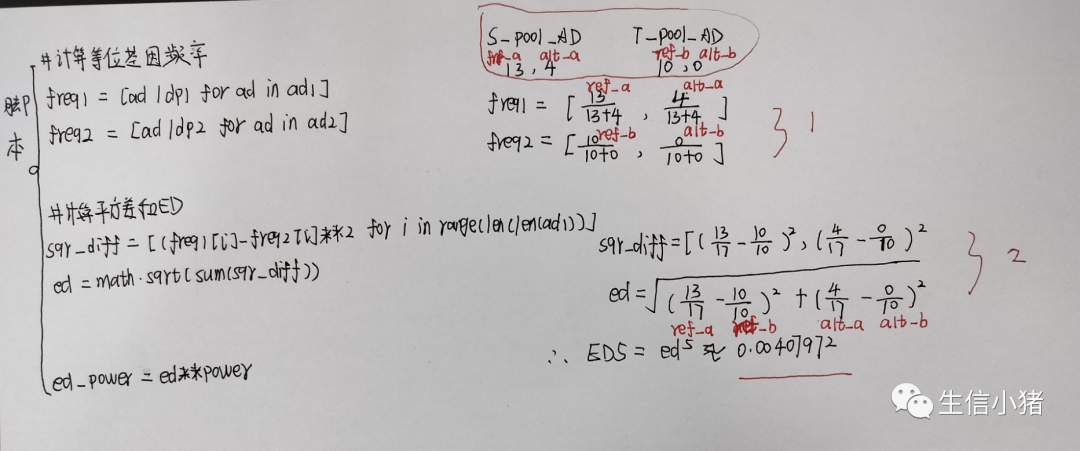 脚本
#计算等位基因频率
freq1 = [ad/dp1 for ad in ad1]
freq2 = [ad/dp2 for ad in ad2]
#计算平方差和ED
sqr_diff = [(freq1[i]-freq2[i]**2 for i in range(len(len(ad1))]
ed = math.sqrt(sum(sqr_diff))
ed_power = ed**power
S_pool_AD T_pool_AD
ref_a alt_a ref_b alt_b
13, 4 10, 0
ref_a alt_a
freq1 = [13/13+4, 4/13+4]
ref_b alt_b
freq2 = [10/10+0, 0/10+0]
} 1
sqr_diff = [(13/17 - 10/10)², (4/17 - 0/10)²
ed = √(13/17 - 10/10)² + (4/17 - 0/10)²
ref_a ref_b alt_a alt_b
} 2
∴ ED5 = ed⁵ ≈ 0.00407972
生信小猪